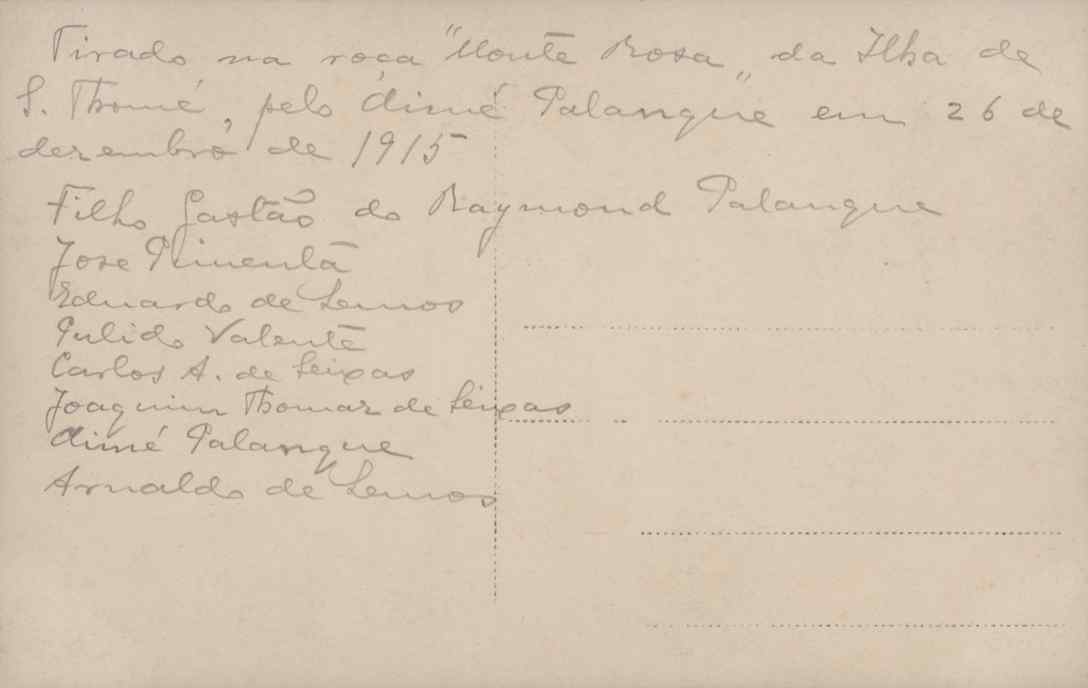 Tirado na roça "Monte Rosa„ da Ilha de
S. Thomé, pelo Aimé Palangue em 26 de
dezembro de 1915
Filho Gastão do Raymond Palangue
Jose Pimenta
Eduardo de Lemos
Pulido Valente
Carlos A. de Seixas
Joaquim Thomaz de Seixas
Aimé Palangue
Arnaldo de Lemos